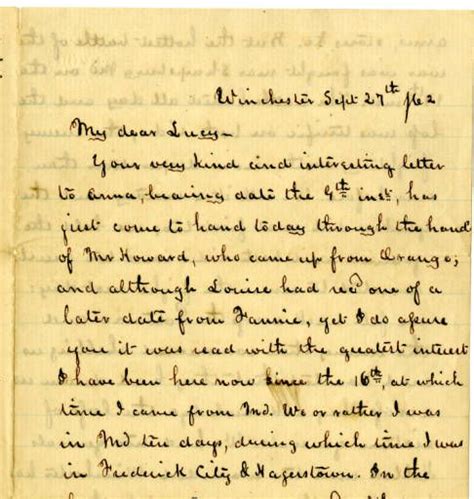 Winchester Sept 27th /62
My dear Lucy—
Your very kind and interesting letter
to Anna, bearing date the 9th inst, has
just come to hand today through the hand
of Mr Howard, who came up from Orange;
and although Louise had recd one of a
later date from Fannie, yet I do assure
you it was read with the greatest interest
I have been here now since the 16th, at which
time I came from Md. We or rather I was
in Md ten days, during which time I was
in Frederick City & Hagerstown. In the